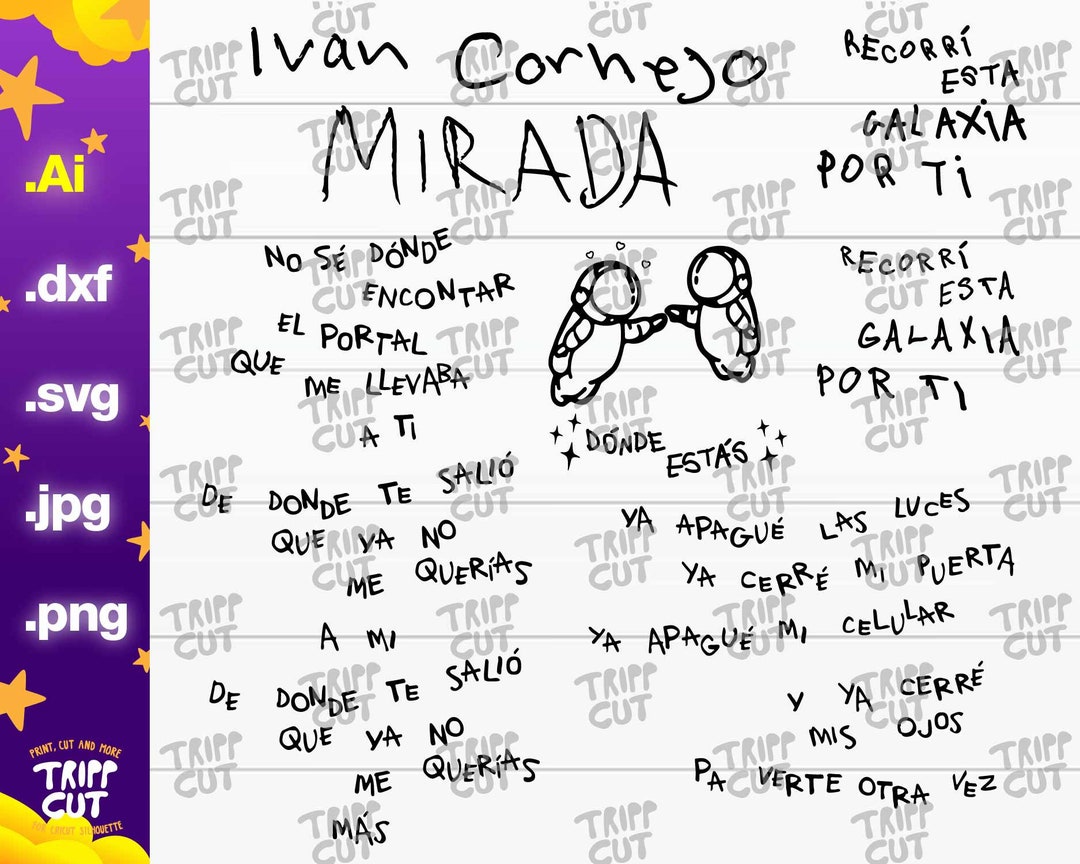 .Ai
.dxf
.svg
.jpg
.png
PRINT, CUT AND MORE
TRIPP
CUT
FOR CRICUT SILHOUETTE
Ivan Cornejo
MIRADA
NO SÉ DÓNDE
ENCONTAR
EL PORTAL
QUE
ME LLEVABA
A TI
DE DONDE TE SALIÓ
QUE YA NO
ME QUERÍAS
A MI
DE DONDE TE SALIÓ
QUE YA NO
ME QUERÍAS
MÁS
RECORRÍ
ESTA
GALAXIA
POR TI
RECORRÍ
ESTA
GALAXIA
POR TI
DÓNDE
ESTÁS
YA APAGUÉ LAS LUCES
YA CERRÉ MI PUERTA
YA APAGUÉ MI CELULAR
Y YA CERRÉ
MIS OJOS
PA VERTE OTRA VEZ
TRIPP
CUT